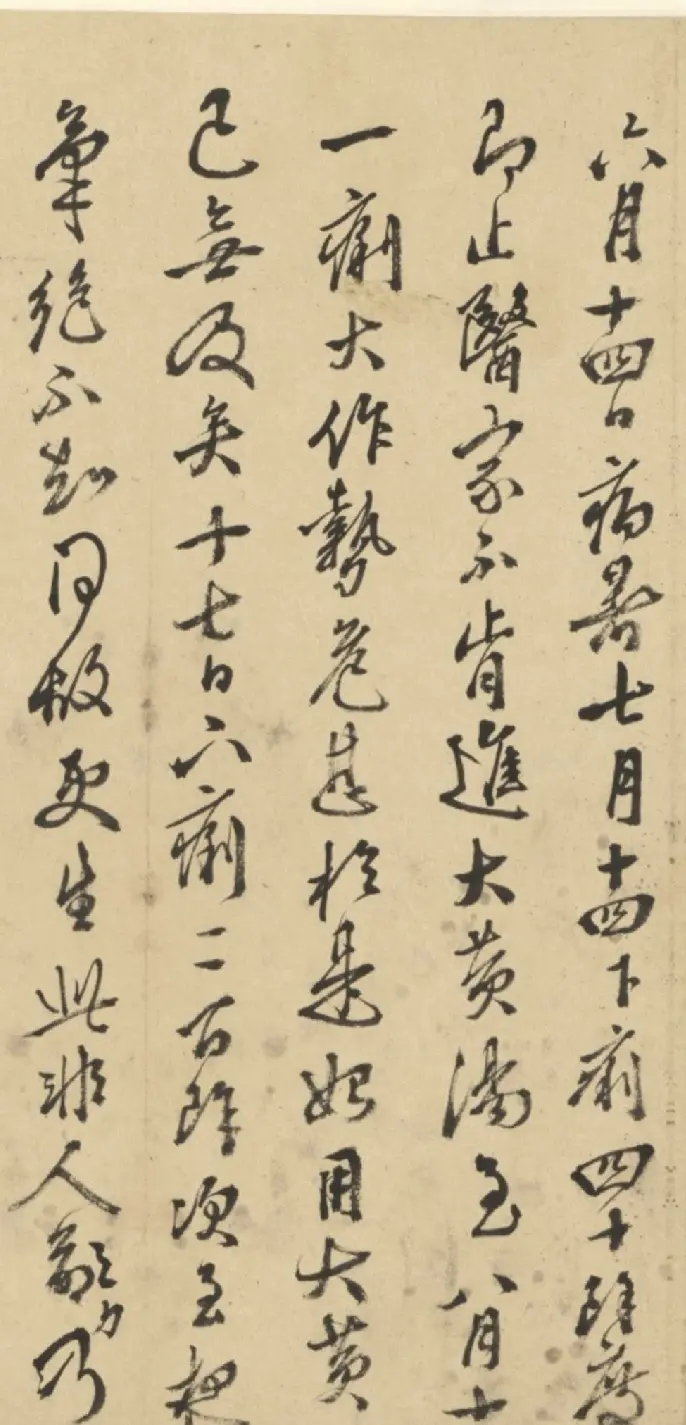 六月十四日病暑七月十四下痢四十餘
即止醫家不肯進大黃湯至八月十
一痢大作勢危甚於是始用大黃
已無及矣十七日六痢二百餘次至夜
氣絕不知何故更生此非人齡力乃